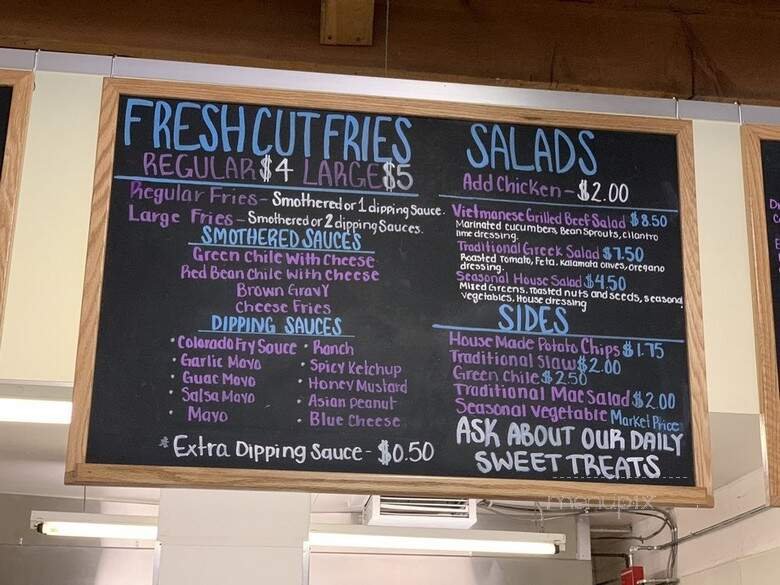 FRESH CUT FRIES
REGULAR $4 LARGE $5
Regular Fries - Smothered or 1 dipping Sauce.
Large Fries - Smothered or 2 dipping Sauces.
SMOTHERED SAUCES
Green Chile With Cheese
Red Bean Chile With Cheese
Brown Gravy
Cheese Fries
DIPPING SAUCES
• Colorado Fry Sauce
• Garlic Mayo
• Guac Mayo
• Salsa Mayo
• Mayo
• Ranch
• Spicy Ketchup
• Honey Mustard
• Asian Peanut
• Blue Cheese
* Extra Dipping Sauce - $0.50
SALADS
Add Chicken - $2.00
Vietmanese Grilled Beef Salad $8.50
Marinated cucumbers, Bean Sprouts, cilantro
lime dressing.
Traditional Greek Salad $7.50
Roasted Tomato, Feta, Kalamata olives, oregano
dressing.
Seasonal House Salad $4.50
Mixed Greens, roasted nuts and seeds, seasonal
vegetables, House dressing
SIDES
House Made Potato Chips $1.75
Traditional Slaw $2.00
Green Chile $2.50
Traditional Mac Salad $2.00
Seasonal Vegetable Market Price
ASK ABOUT OUR DAILY
SWEET TREATS
menupix